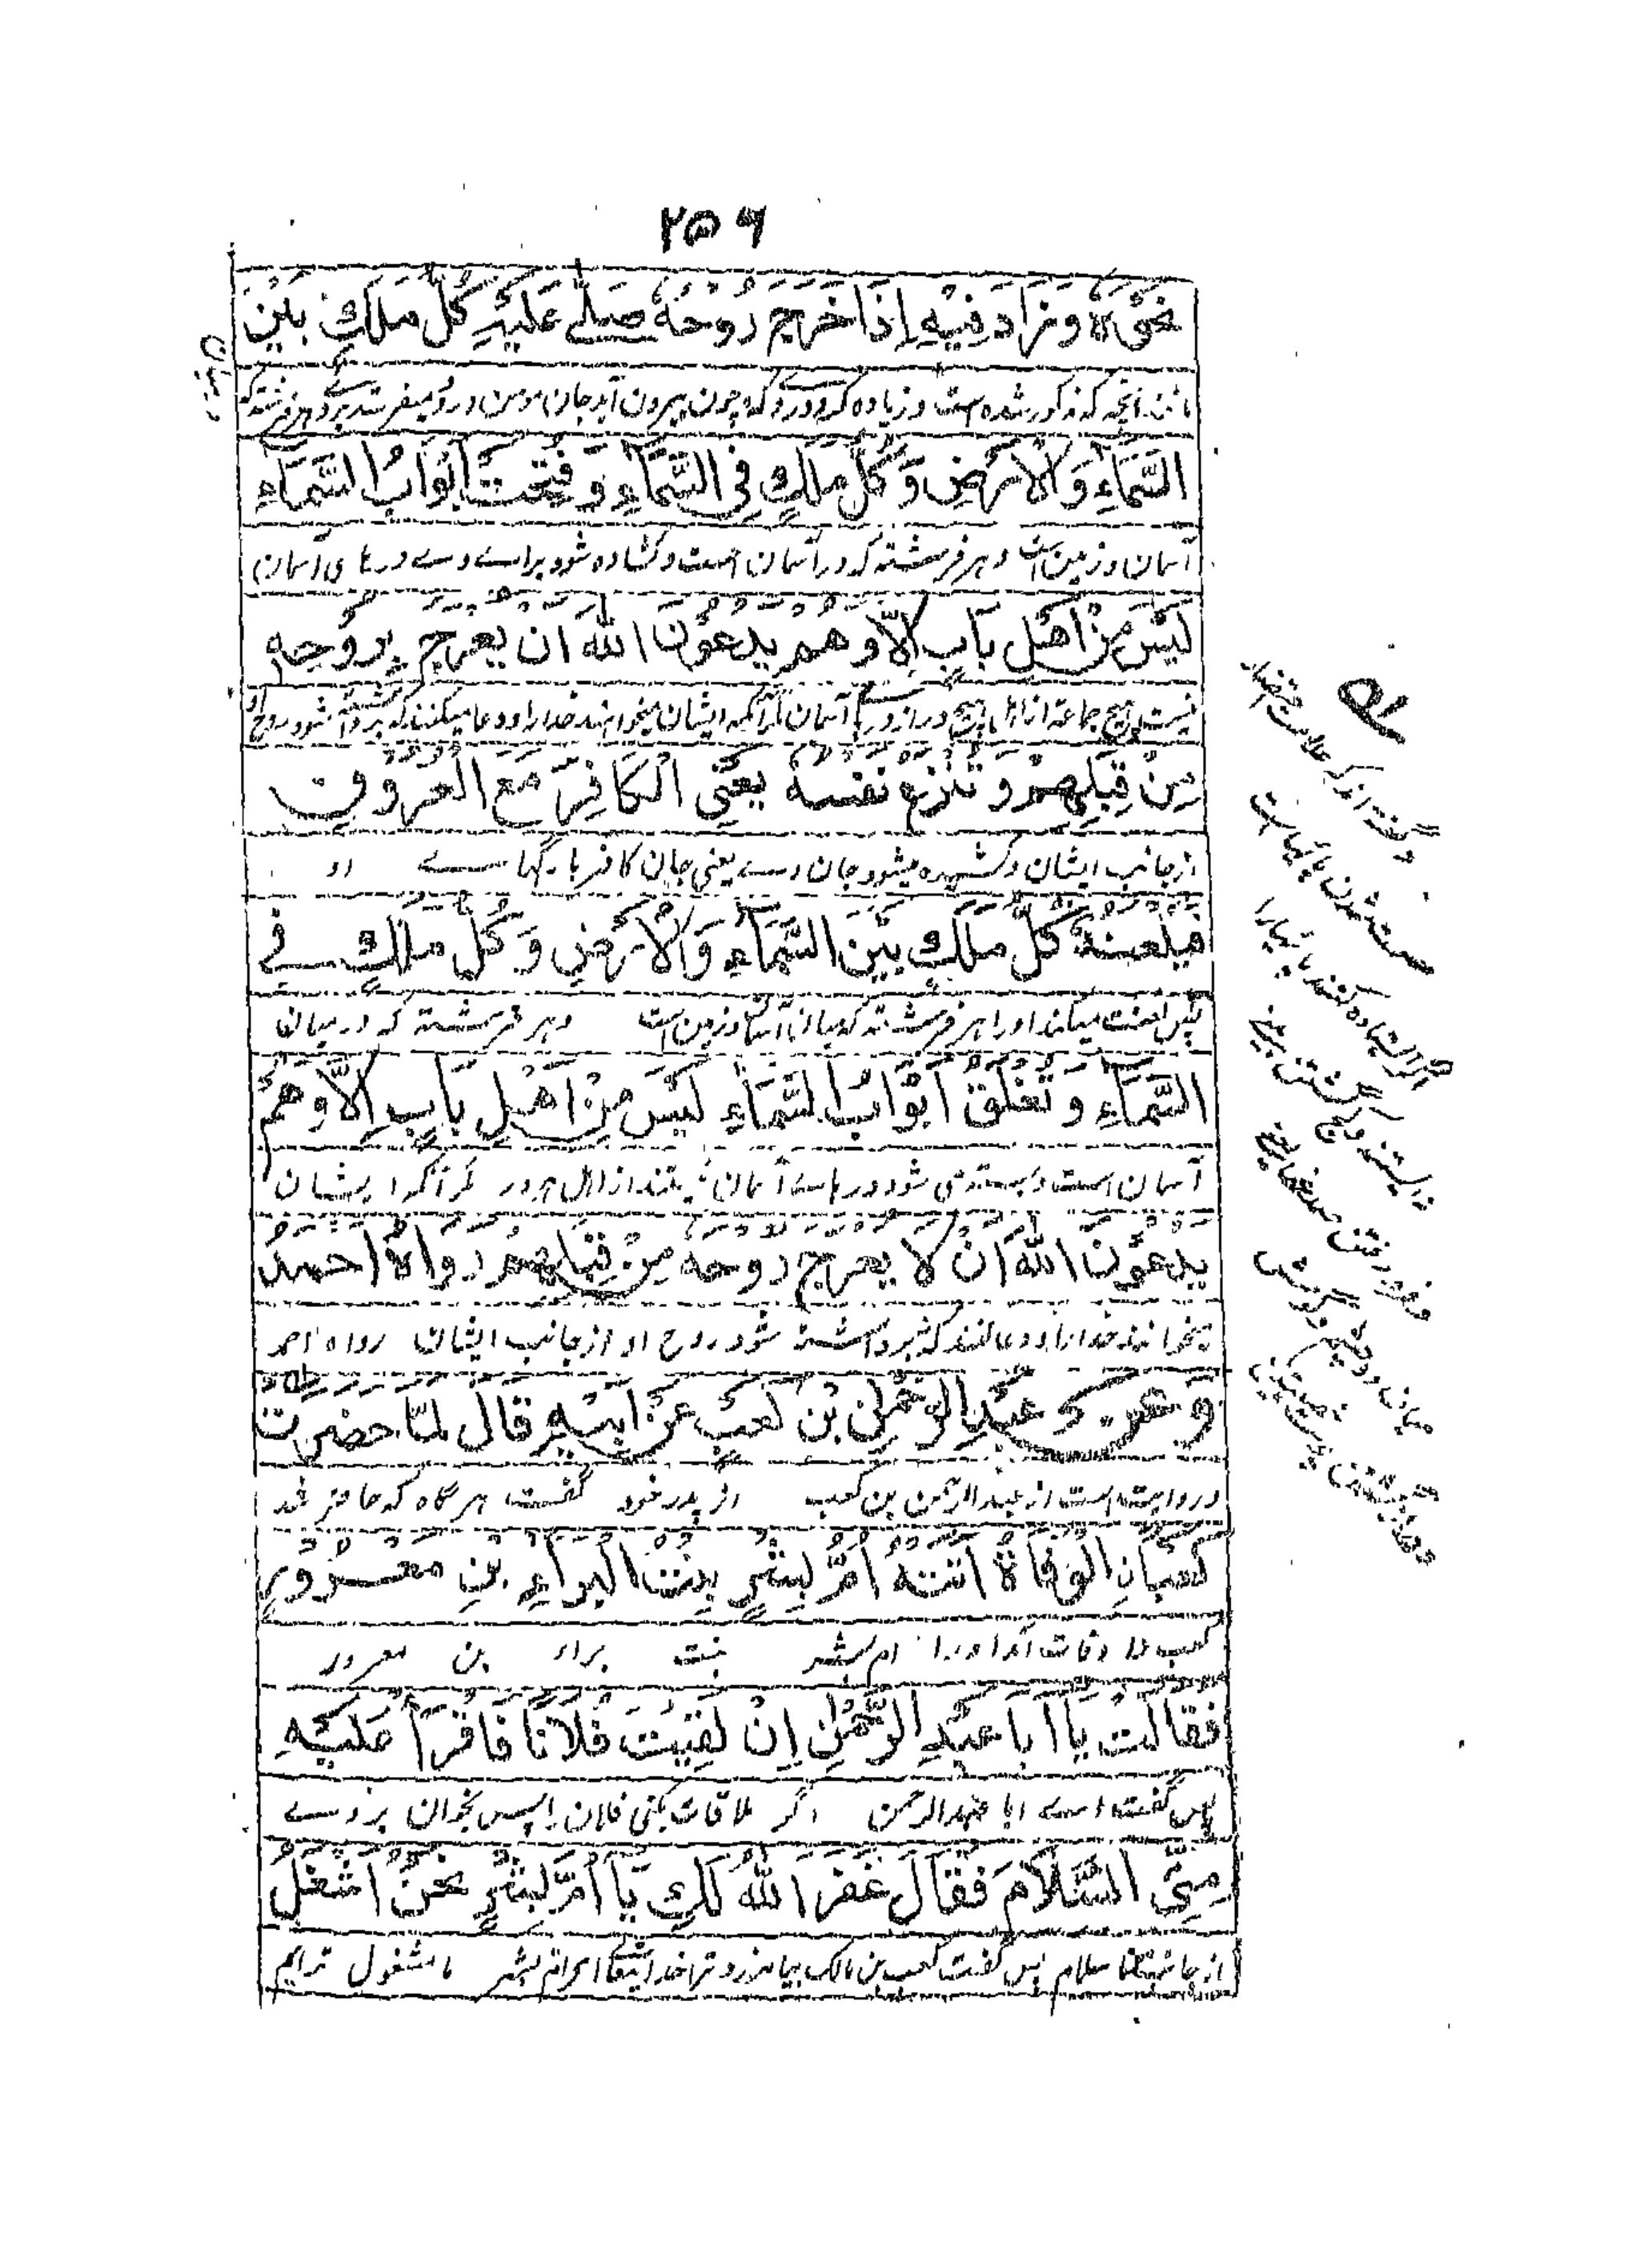 ۲۵۶
نَحْوَهُ وَزَادَ فِيْهِ اِذَا خَرَجَ رُوْحُهٗ صَلّٰى عَلَيْهِ كُلُّ مَلَكٍ بَيْنَ
مانند آنچه که مذکور شده است و زیاده کرد و درو که چون بیرون آید جان مومن درود میفرستد برو هر فرشته که
السَّمَآءِ وَالْاَرْضِ وَكُلُّ مَلَكٍ فِي السَّمَآءِ وَفُتِحَتْ اَبْوَابُ السَّمَآءِ
آسمان و زمین است و هر فرشته که در آسمان است و کشاده شود برای وے درهای آسمان
لَيْسَ مِنْ اَهْلِ بَابٍ اِلَّا وَهُمْ يَدْعُوْنَ اللّٰهَ اَنْ يُعْرَجَ بِرُوْحِهٖ
نیست هیچ جماعة از اهل هیچ در از درهای آسمان مگر آنکه ایشان میخوانند خدا را و دعا میکنند که برداشته شود روح او
مِنْ قِبَلِهِمْ وَتُنْزَعُ نَفْسُهٗ يَعْنِي الْكَافِرَ مَعَ الْعُرُوْقِ
از جانب ایشان و کشیده میشود جان وے یعنی جان کافر با رگهاے او
فَيَلْعَنُهٗ كُلُّ مَلَكٍ بَيْنَ السَّمَآءِ وَالْاَرْضِ وَكُلُّ مَلَكٍ فِي
پس لعنت میکند او را هر فرشته که میان آسمان و زمین است و هر فرشته که درمیان
السَّمَآءِ وَتُغْلَقُ اَبْوَابُ السَّمَآءِ لَيْسَ مِنْ اَهْلِ بَابٍ اِلَّا وَهُمْ
آسمان است و بسته می شود درهاے آسمان نیستند از اهل هر در مگر آنکه ایشان
يَدْعُوْنَ اللّٰهَ اَنْ لَا يُعْرَجَ رُوْحُهٗ مِنْ قِبَلِهِمْ رَوَاهُ اَحْمَدُ
میخوانند خدا را و دعا کنند که نبرداشته شود روح او از جانب ایشان رواه احمد
وَعَنْ عَبْدِ الرَّحْمٰنِ بْنِ كَعْبٍ عَنْ اَبِيْهِ قَالَ لَمَّا حَضَرَتْ
و روایت است از عبدالرحمن بن کعب از پدر خود گفت هر گاه که حاضر شد
كَعْبَانِ الْوَفَاةُ اَتَتْهُ اُمُّ بِشْرٍ بِنْتُ الْبَرَاءِ بْنِ مَعْرُوْرٍ
کعب را وفات آمد او را ام بشر بنت براء بن معرور
فَقَالَتْ يَا اَبَا عَبْدِ الرَّحْمٰنِ اِنْ لَقِيْتَ فُلَانًا فَاقْرَأْ عَلَيْهِ
پس گفت اے ابا عبدالرحمن اگر ملاقات بکنی فلان را پس بخوان بر وے
مِنِّي السَّلَامَ فَقَالَ غَفَرَ اللّٰهُ لَكِ يَا اُمَّ بِشْرٍ نَحْنُ اَشْغَلُ
از جانب من سلام پس گفت کعب بن مالک بیامرزد ترا خدا اے ام بشر ما مشغول تریم